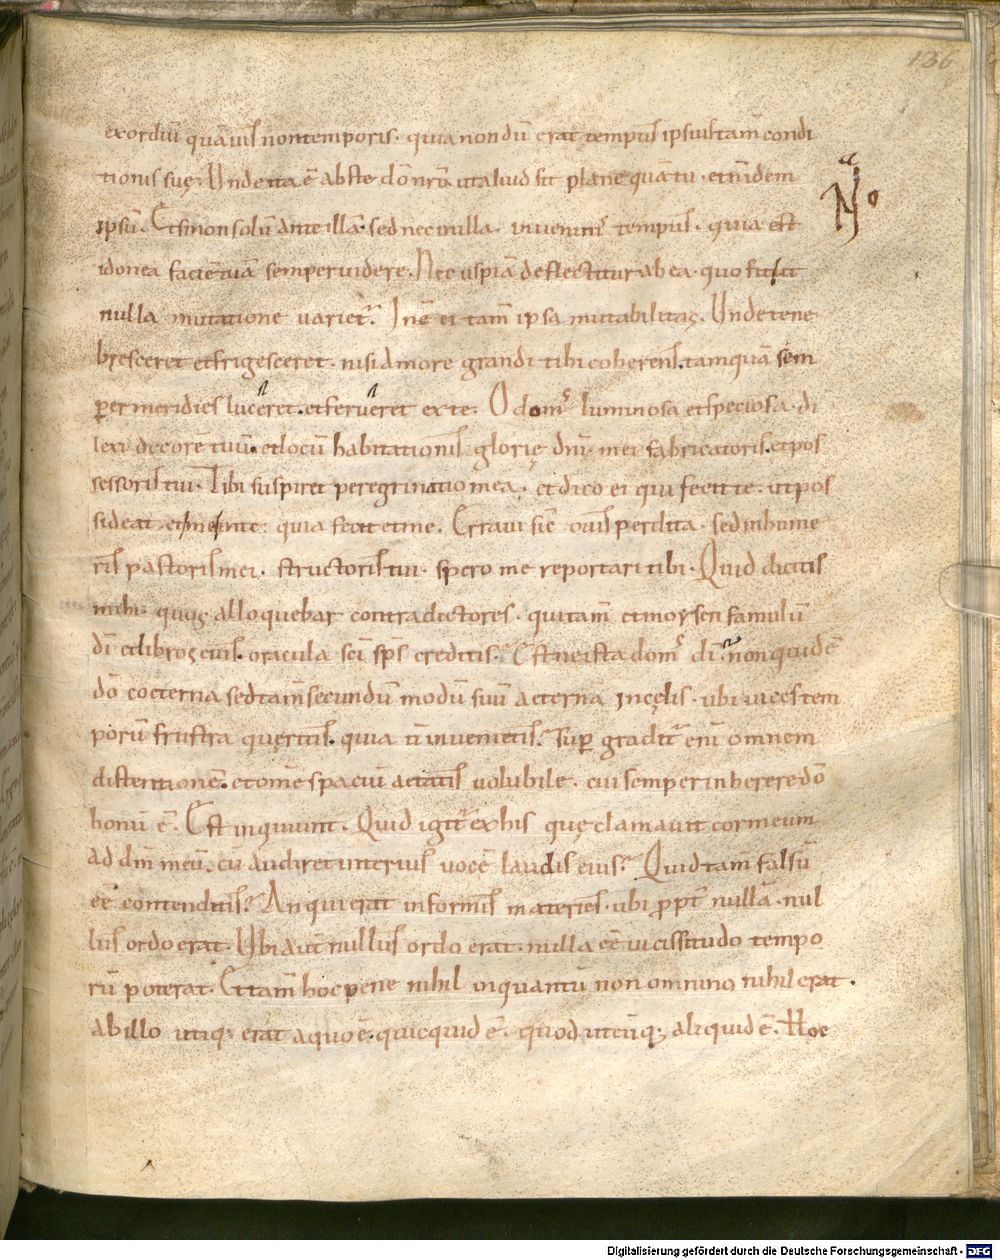 136
exordiū quāuis non temporis · quia nondū erat tempus ipsius tam̄ condi
tionis suę. Unde ita ē abs te dō nr̄o ut aliud sit plane quā tu · et n̄ idem
ipsū. Etsi non solū ante illā · sed nec in illa · invenim᷒ tempus · quia est
idonea faciē tuā semper videre. Nec uspiā deflectitur ab ea · quo fit ut
nulla mutatione variet᷒. Inē ei tam̄ ipsa mutabilitas. Unde tene
bresceret et frigesceret · nisi amore grandi tibi coherens · tamquā sem
ꝑ meridies luceret · et ferveret ex te. O dom᷒ luminosa et speciosa · di
lexi decorē tuū · et locū habitationis glorię dn̄i mei fabricatoris · et pos
sessoris tui. Tibi suspiret peregrinatio mea · et dico ei qui fecit te · ut pos
sideat et me in te · quia fecit et me. Erravi sic̄ ovis perdita · sed in hume
ris pastoris mei · structoris tui · spero me reportari tibi. Quid dicitis
mihi quos alloquebar contradictores · qui tam̄ et moysen famulū
dī et libros eius · oracula sc̄i sp̄s creditis. Est ne ista dom᷒ dī · non quidē
dō coeterna sed tam̄ secundū modū suū aeterna in cęlis · ubi vices tem
porū frustra queritis · quia n̄ invenietis. Sup graditr̄ enī omnem
distentionē · et om̄e spaciū aetatis volubile · cui semper inherere dō
bonū ē. Est inquiunt. Quid igit᷒ ex his quę clamavit cor meum
ad dm̄ meū · cū audiret interius vocē laudis eius. Quid tam̄ falsū
eē contenditis. An qui erat informis materies · ubi ꝓpt̄ nullā · nul
lus ordo erat. Ubi aut̄ nullus ordo erat · nulla eē vicissitudo tempo
rū poterat. Et tam̄ hoc pene nihil inquantū non omnino nihil erat ·
ab illo utiq; erat a quo ē · quicquid ē · quod utcūq; aliquid ē. Hoc
Digitalisierung gefördert durch die Deutsche Forschungsgemeinschaft - DFG